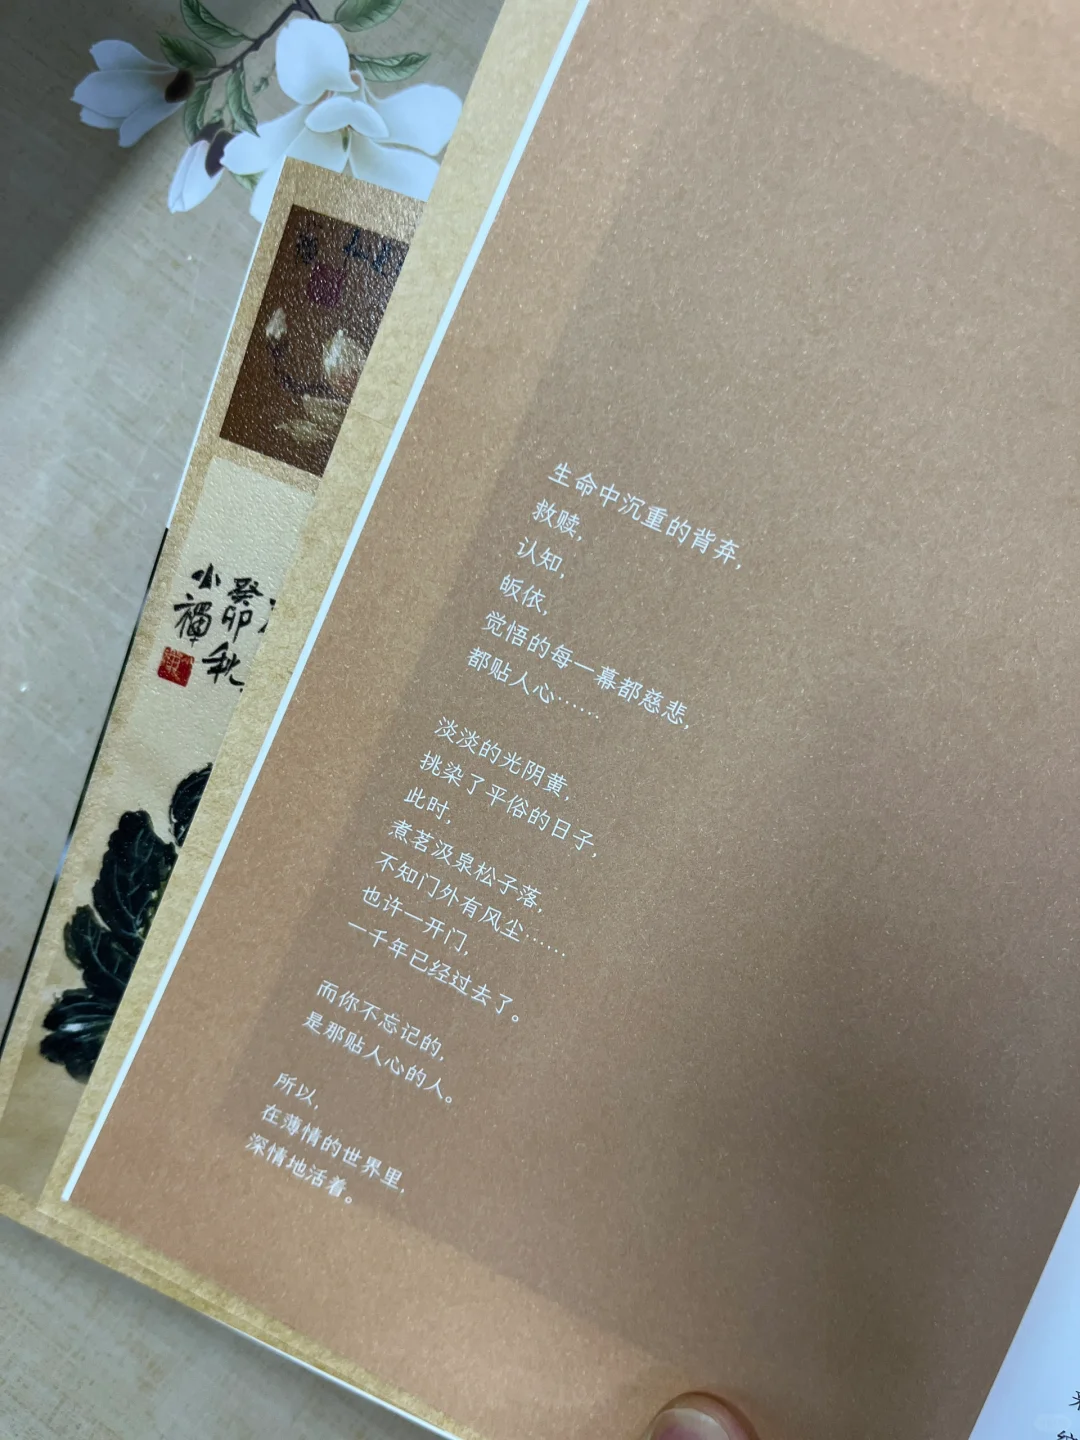 生命中沉重的背弃,
救赎,
认知,
皈依,
觉悟的每一幕都慈悲,
都贴人心……
淡淡的光阴黄,
挑染了平俗的日子,
此时,
煮茗汲泉松子落,
不知门外有风尘……
也许一开门,
一千年已经过去了。
而你不忘记的,
是那贴人心的人。
所以,
在薄情的世界里,
深情地活着。
癸卯秋
小禪